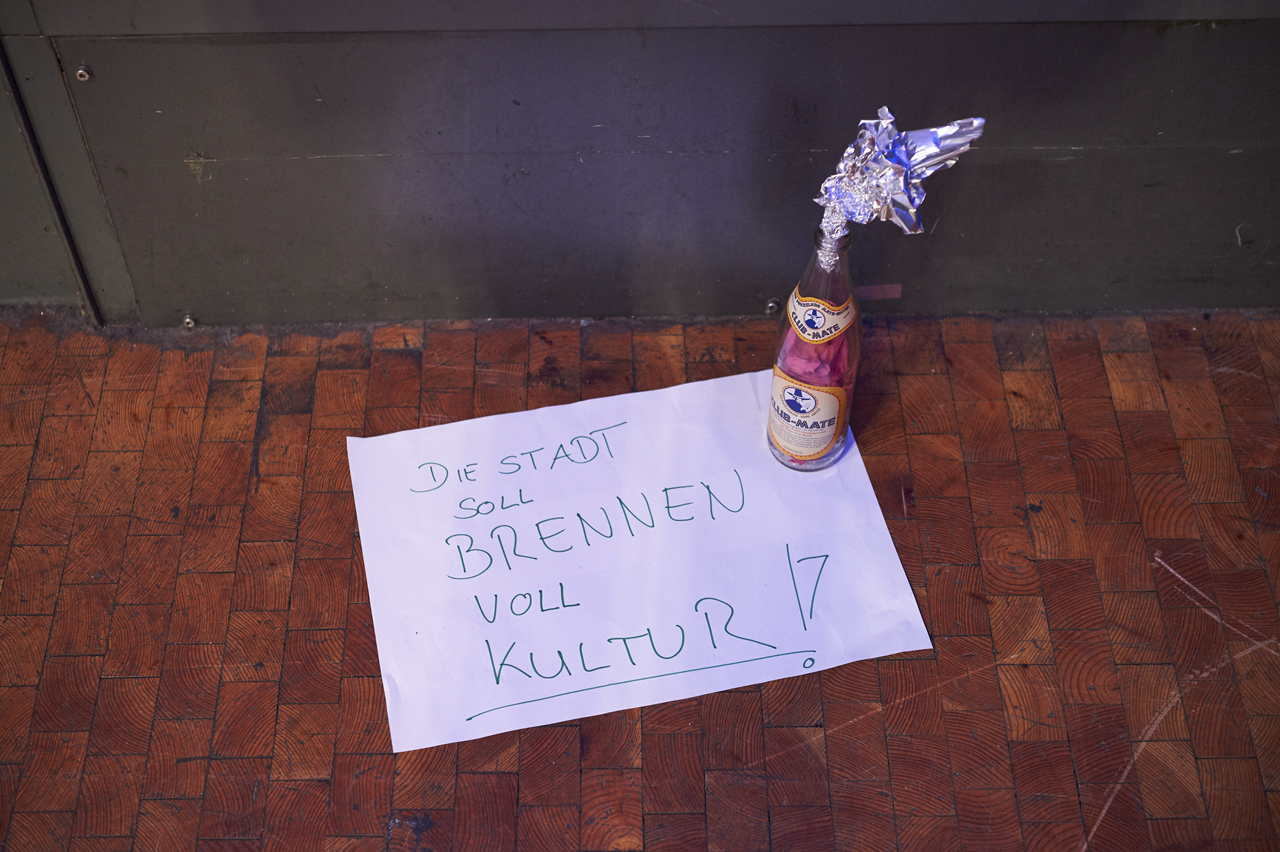 CLUB-MATE
CLUB-MATE
DIE STADT
SOLL
BRENNEN
VOLL
KULTUR!